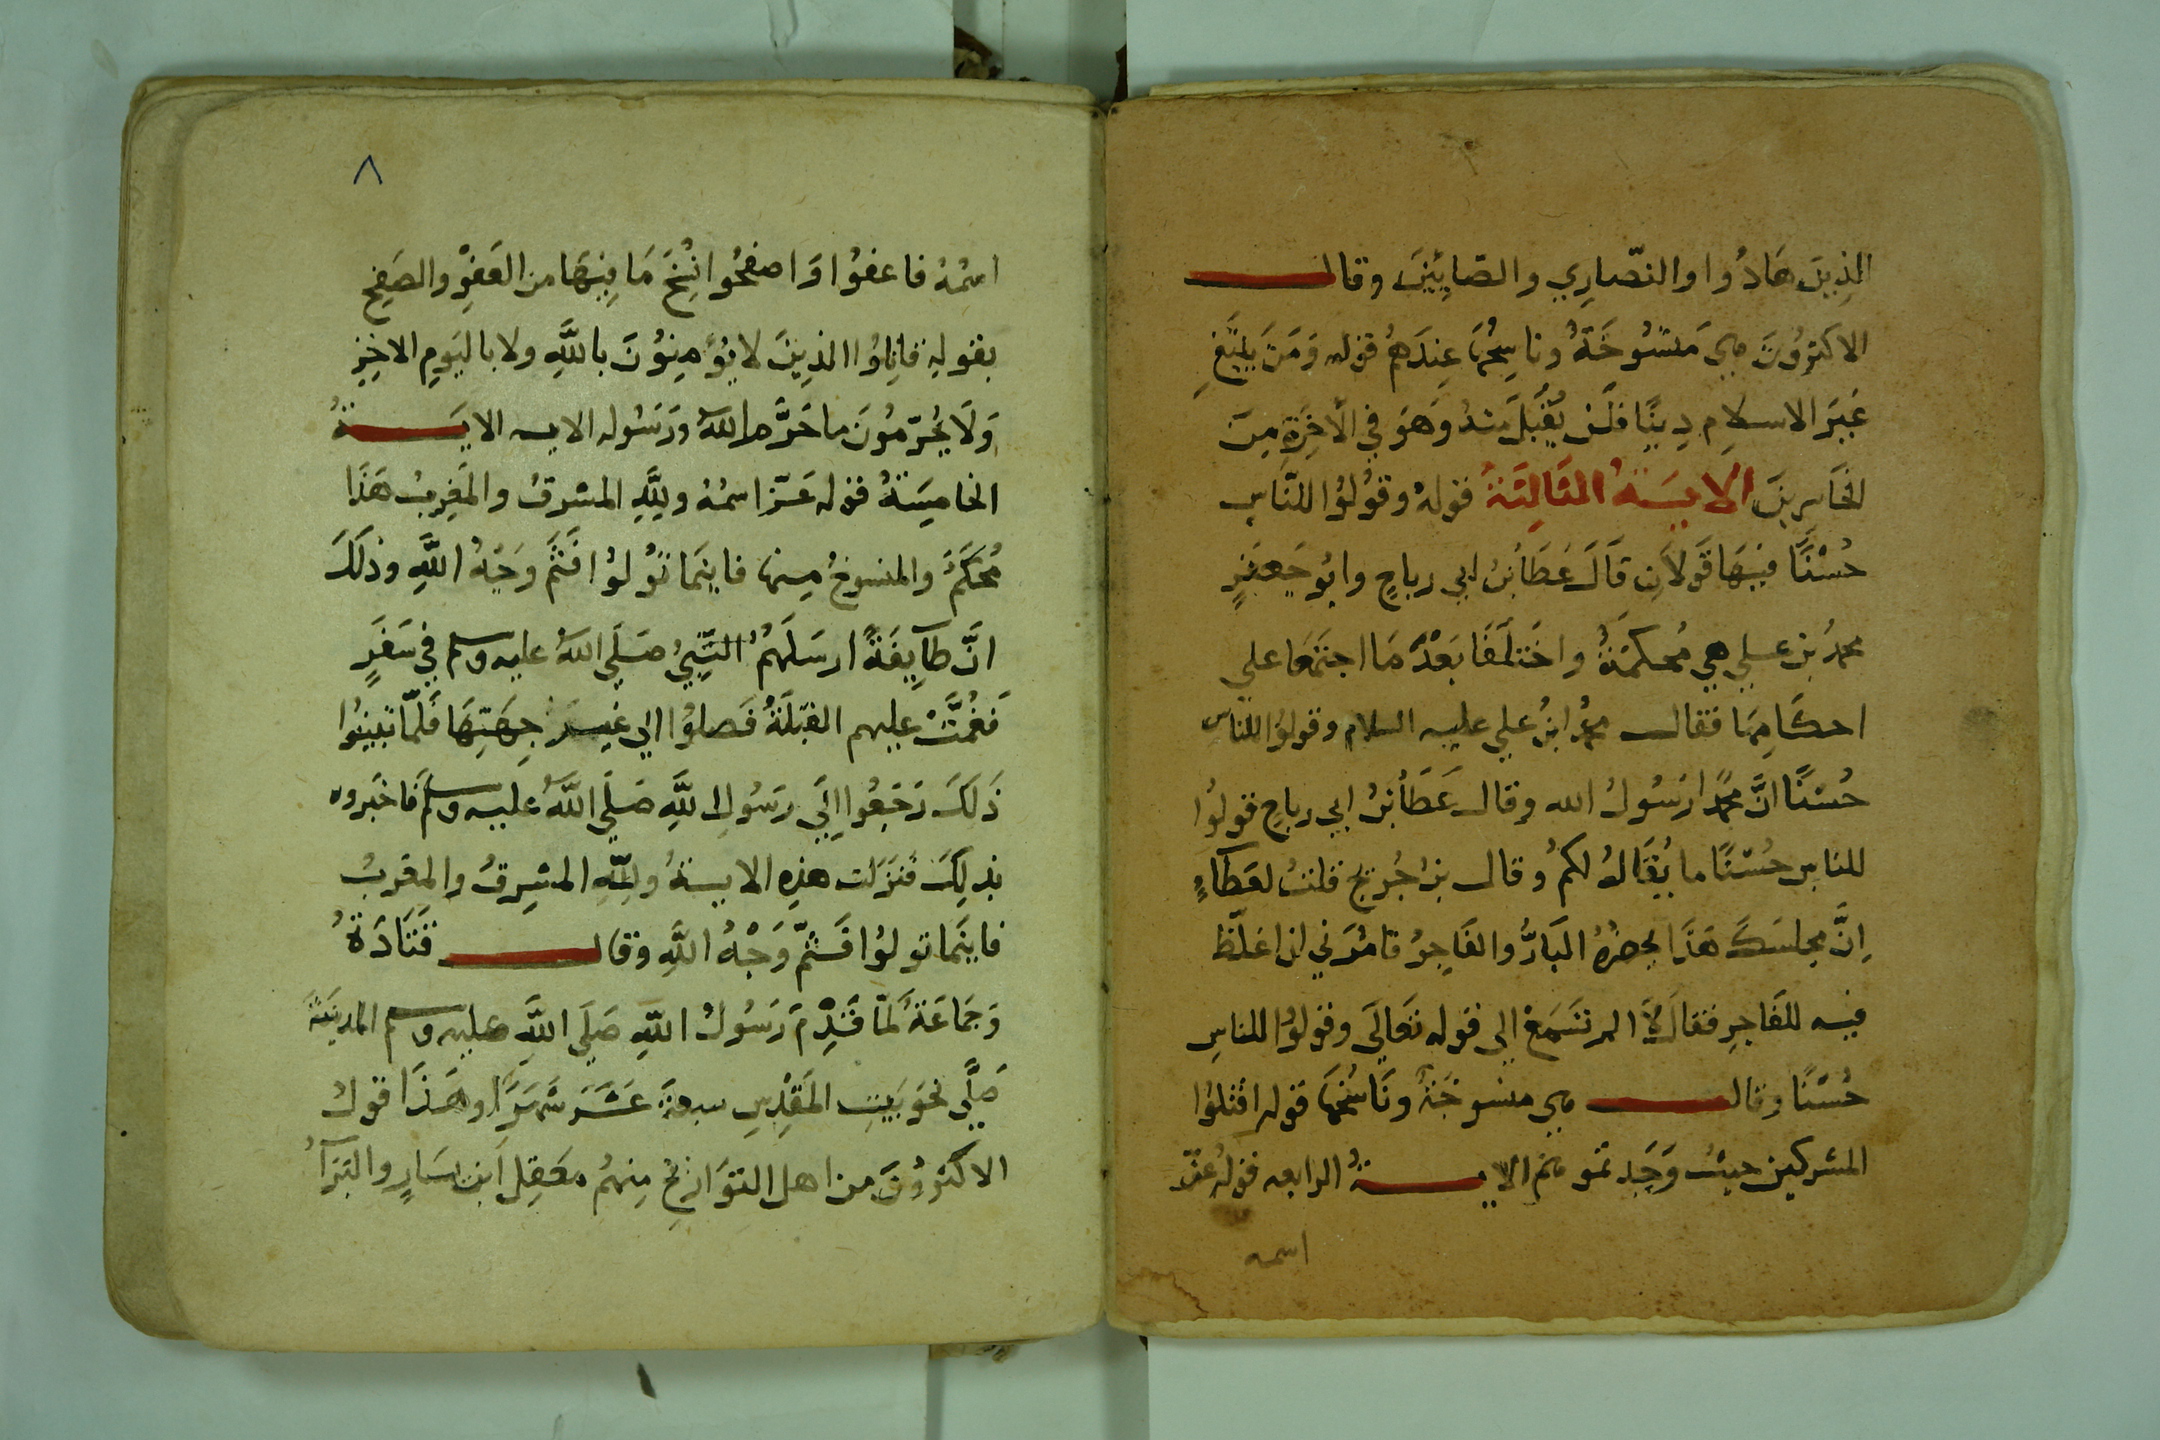 الذِينَ هَادُوا والنّصَارِي والصّابِئينَ وقال
الاكثرُونَ هى مَنسُوخَةٌ وناسِخُهَا عِندَهُمُ قوله وَمَنَ يَبْتَغِ
غَيرَ الاسلامِ دِينًا فَلَنْ يُقْبَلَ مِنهُ وَهوَ في الأخِرَةِ مِنَ
الخَاسرينَ الايَــةُ الثَالِثَةُ قوله وقُولوُا للنَّاسِ
حُسْنًا فيهَا قَولَانِ قَالَ عَطَأ بْنُ ابي رباحٍ وابُو جَعفَرٍ
محمدُ بن عَـلي هي مُحكمَةٌ واختلَفَا بَعْدَ مَا اجتَمَعَا علي
احكَامِهَا فقال محمدُ ابنُ علي عليه السلام وقولوُا للناس
حُسْنًا انَّ محمدًا رَسُولُ الله وقال عَطَأ بْنُ ابي رباحٍ قولوُا
للناسِ حُسْنًا ما يُقَالُ لكمُ وقال بنُ جُرَيجٍ قلتُ لعَطَاءٍ
اِنَّ مجلسَكَ هَذَا يحضرهُ البَارُّ والفَاجِرُ فتامُرَني اذا غلّظ
فيه للفَاجرِ فقالَ لَا الم تَسَمَعْ الى قوله تَعَالَى وقولوُا للناسِ
حُسْنًا وقال هى منسوخَةٌ ونَاسُخُهَا قوله اقتلوُا
المشركين حيثُ وَجَدتمُوهُم الايــةُ الرابعه قوله عَزّ
اسمه
٨
اسمُهُ فاعفوُا وَاصفحُوا نُسِخَ مَا فيهَا من العَفِوْ والصَفحِ
بقولِهِ قاتِلوُا الذِينَ لا يُؤمِنوُنَ باللَّهِ ولا باليَومِ الاخِرِ
وَلَا يُحَرّمُونَ ما حَرَّم اللَّهُ ورَسُوله الايه الايَــةُ
الخامِسَةُ قوله عَزّ اسمُهُ ولِلَّهِ المشرقُ والمَغرِبُ هَذَا
مُحكَمٌ والمنسوخُ مِنها فاينَمَا تَوُلوُا فَثَمَّ وَجَهُ اللَّهِ وذلَكَ
انَّ طآيِفَةً ارسَلَهُمُ النَّبِيُ صَلَي اللَّهُ عليه وسلم في سَفَرٍ
فَغُمَّتْ عليهم القبْلَةُ فَصلوُا الي غيــر جِهَتِهَا فَلمّا تبينوُا
ذَلكَ رَجَعُوا الَي رسَُولِ اللَّهِ صَلَي اللَّهُ عليه وسلم فَاخَبَروه
بذلِكَ فَنزَلت هذِهِ الايــةُ ولِلَّهِ المشرِقُ والمغرِبُ
فاينَما تولوُا فَثَمَّ وَجْهُ اللَّهِ وقال قَتَادَةُ
وَجَمَاعَةٌ لَمّا قَدِمَ رَسُولُ اللَّهِ صَلَي اللَّهِ عليه وسلم المدينَةَ
صَلَّي نحوَ بَيتِ المَقْدِسِ سبعةَ عَشَرَ شَهرَا وهَذَا قولُ
الاكثرُونَ من اهل التوَاريْخِ مِنهُم مَعَقِل ابن يسَارٍ والبَرَآُ